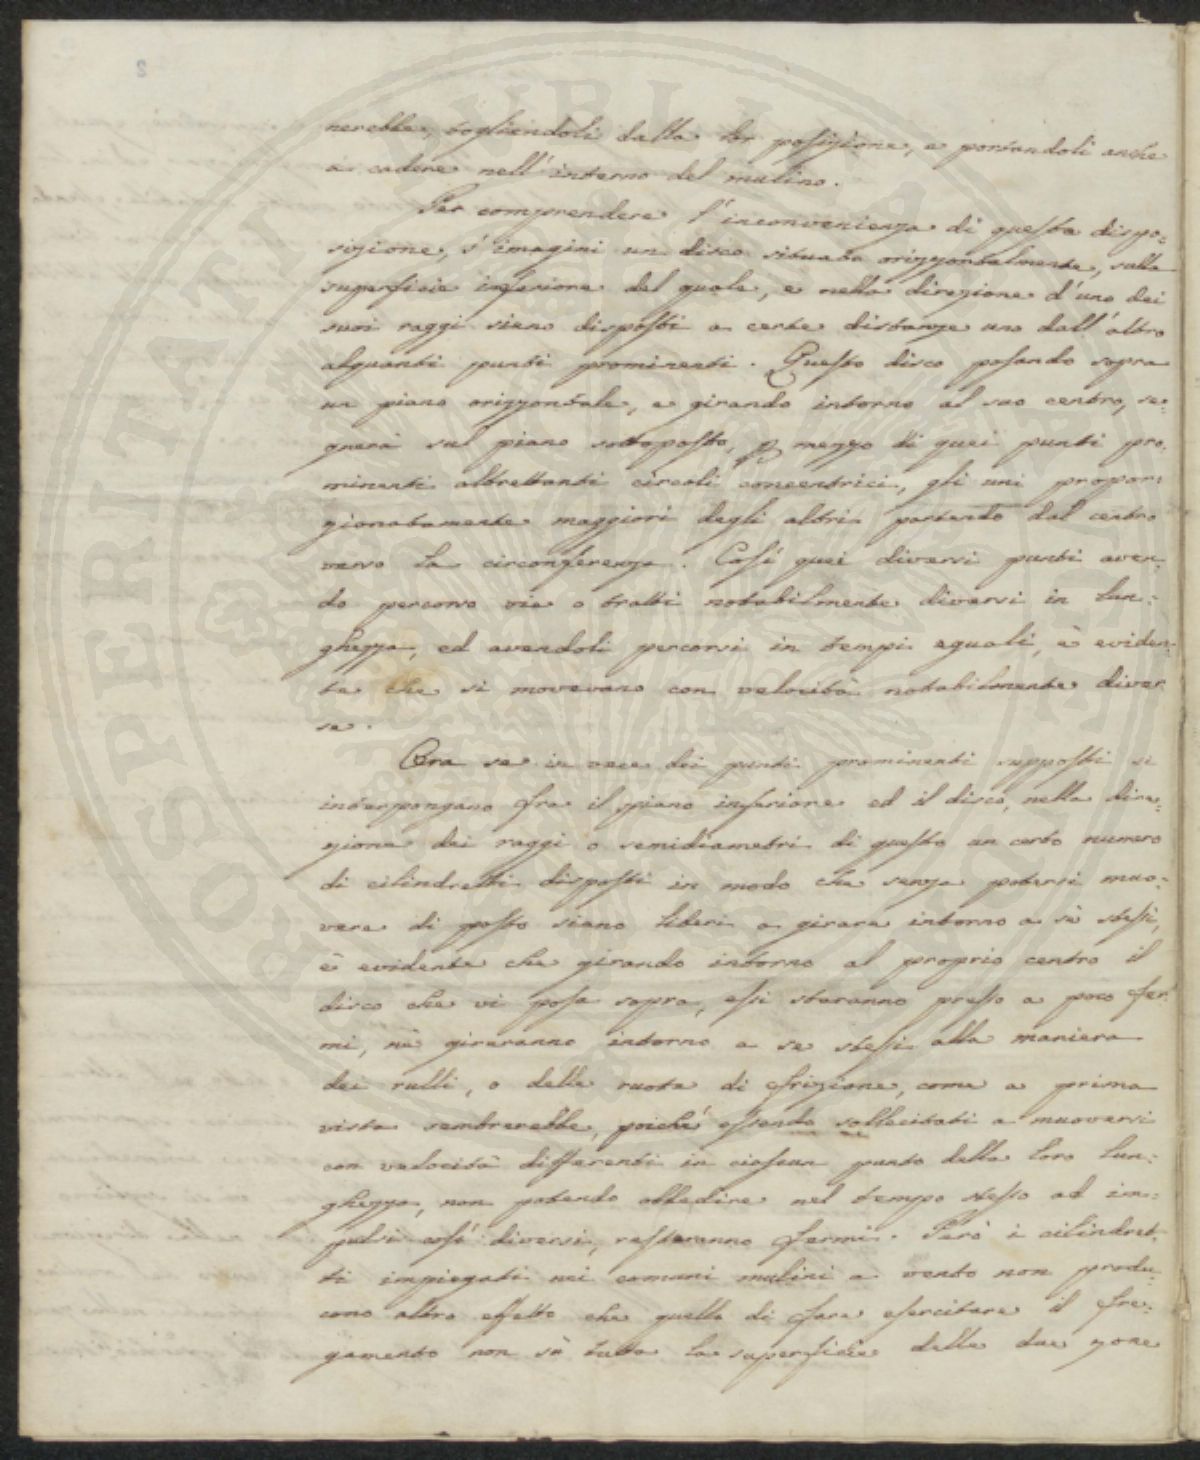 2
nerebbe, togliendoli dalla lor posizione, e portandoli anche
a cadere nell'interno del mulino.
Per comprendere l'inconvenienza di questa dispo=
sizione, s'imagini un disco situato orizzontalmente, sulla
superficie inferiore del quale, e nella direzione d'uno dei
suoi raggi sieno disposti a certe distanze uno dall'altro
alquanti punti prominenti. Questo disco posando sopra
un piano orizzontale, e girando intorno al suo centro, se=
gnerà sul piano sottoposto, p mezzo di quei punti pro=
minenti altrettanti circoli concentrici, gli uni propor=
zionatamente maggiori degli altri partendo dal centro
verso la circonferenza. Così quei diversi punti aven=
do percorso vie o tratti notabilmente diversi in lun=
ghezza, ed avendoli percorsi in tempi eguali, è eviden=
te che si movevano con velocità notabilmente diver
se.
Ora se in vece dei punti prominenti supposti si
interpongano fra il piano inferiore ed il disco, nella dire=
zione dei raggi o semidiametri di questo un certo numero
di cilindretti disposti in modo che senza potersi muo=
vere di posto siano liberi a girare intorno a sè stessi,
è evidente che girando intorno al proprio centro il
disco che vi posa sopra, essi staranno presso a poco fer
mi, nè gireranno intorno a se stessi alla maniera
dei rulli, o delle ruote di frizione, come a prima
vista sembrerebbe, poiché essendo sollecitati a muoversi
con velocità differenti in ciascun punto della loro lun=
ghezza, non potendo obbedire nel tempo stesso ad im=
pulsi così diversi, resteranno fermi. Però i cilindret=
ti impiegati nei comuni mulini a vento non produ=
cono altro effetto che quello di fare esercitare il fre=
gamento non sù tutta la superficie delle due zone